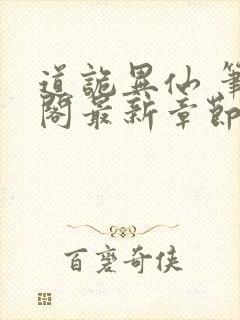 道詭異仙 筆
閣最新章節
百麗奇俠